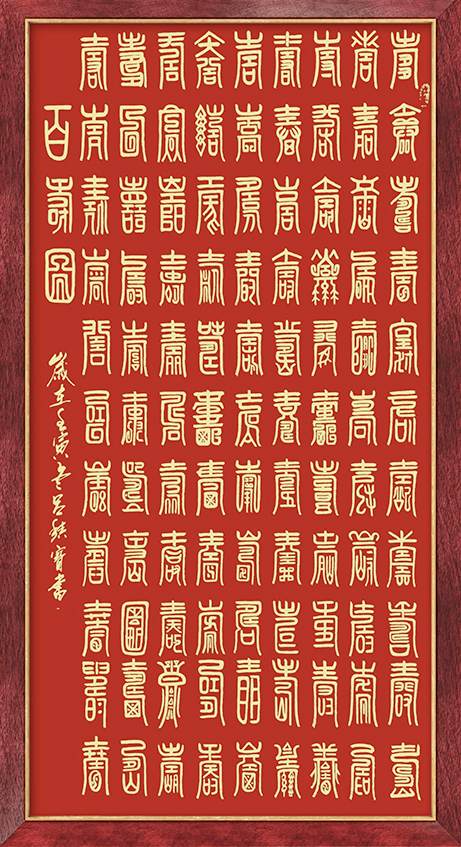 壽壽壽壽壽壽壽壽壽壽壽
壽壽壽壽壽壽壽壽壽壽壽
壽壽壽壽壽壽壽壽壽壽壽
壽壽壽壽壽壽壽壽壽壽壽
壽壽壽壽壽壽壽壽壽壽壽
壽壽壽壽壽壽壽壽壽壽壽
壽壽壽壽壽壽壽壽壽壽壽
壽壽壽壽壽壽壽壽壽壽壽
壽壽壽壽壽壽壽壽壽壽壽
百壽圖
歲在壬寅 寶書